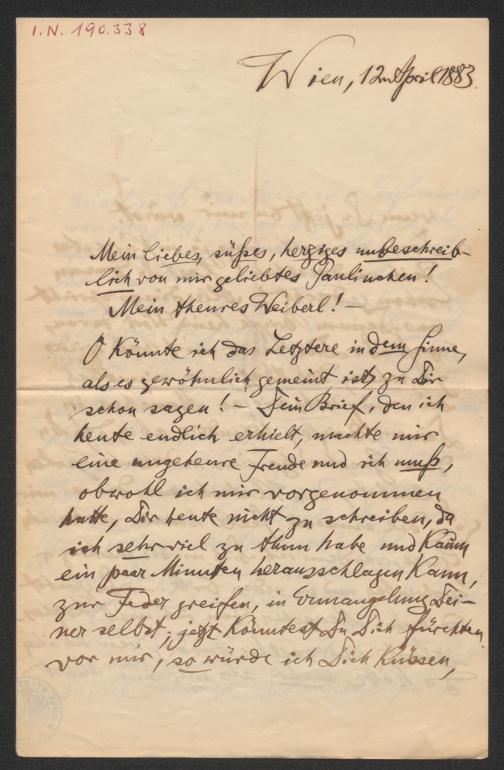 I.N. 190.338
Wien, 12 April 1883.
Mein liebes, süßes, herziges unbeschreib-
lich von mir geliebtes Paulinchen!
Mein theures Weiberl! —
O könnte ich das Letztere in dem Sinne,
als es gewöhnlich gemeint ist, zu Dir
schon sagen! — Dein Brief, den ich
heute endlich erhielt, machte mir
eine ungeheure Freude und ich muß,
obwohl ich mir vorgenommen
hatte, Dir heute nicht zu schreiben, da
ich sehr viel zu thun habe und kaum
ein paar Minuten herausschlagen kann,
zur Feder greifen, in Ermangelung Dei-
ner selbst; jetzt könntest Du Dich fürchten
vor mir, so würde ich Dich küssen,